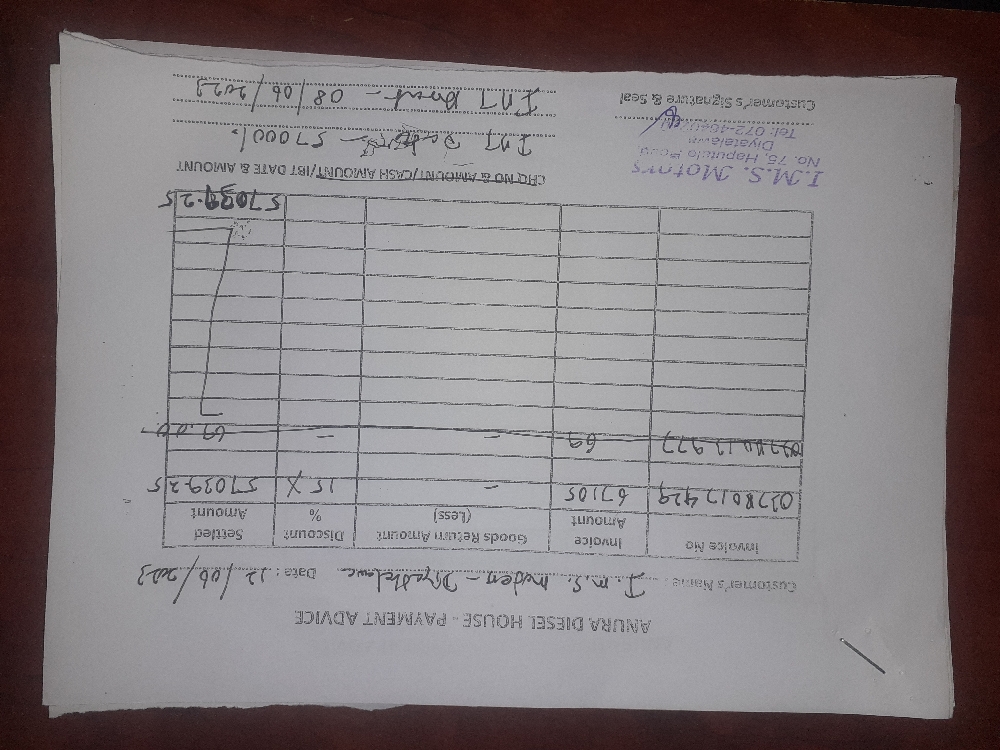 ANURA DIESEL HOUSE - PAYMENT ADVICE
Customer's Name I.M.S. Date: 12/06/2023
Invoice No Invoice Amount Goods Return Amount (Less) Discount % Settled Amount
67105 - 15 % 57039.25
69 - - 69.00
57039.25
CHQ NO & AMOUNT/CASH AMOUNT/IBT DATE & AMOUNT
I.M.S. Motors
No. 75, Haputale Road
Diyatalawa
Tel: 072-
57000/-
08/06/2023
Customer's Signature & Seal